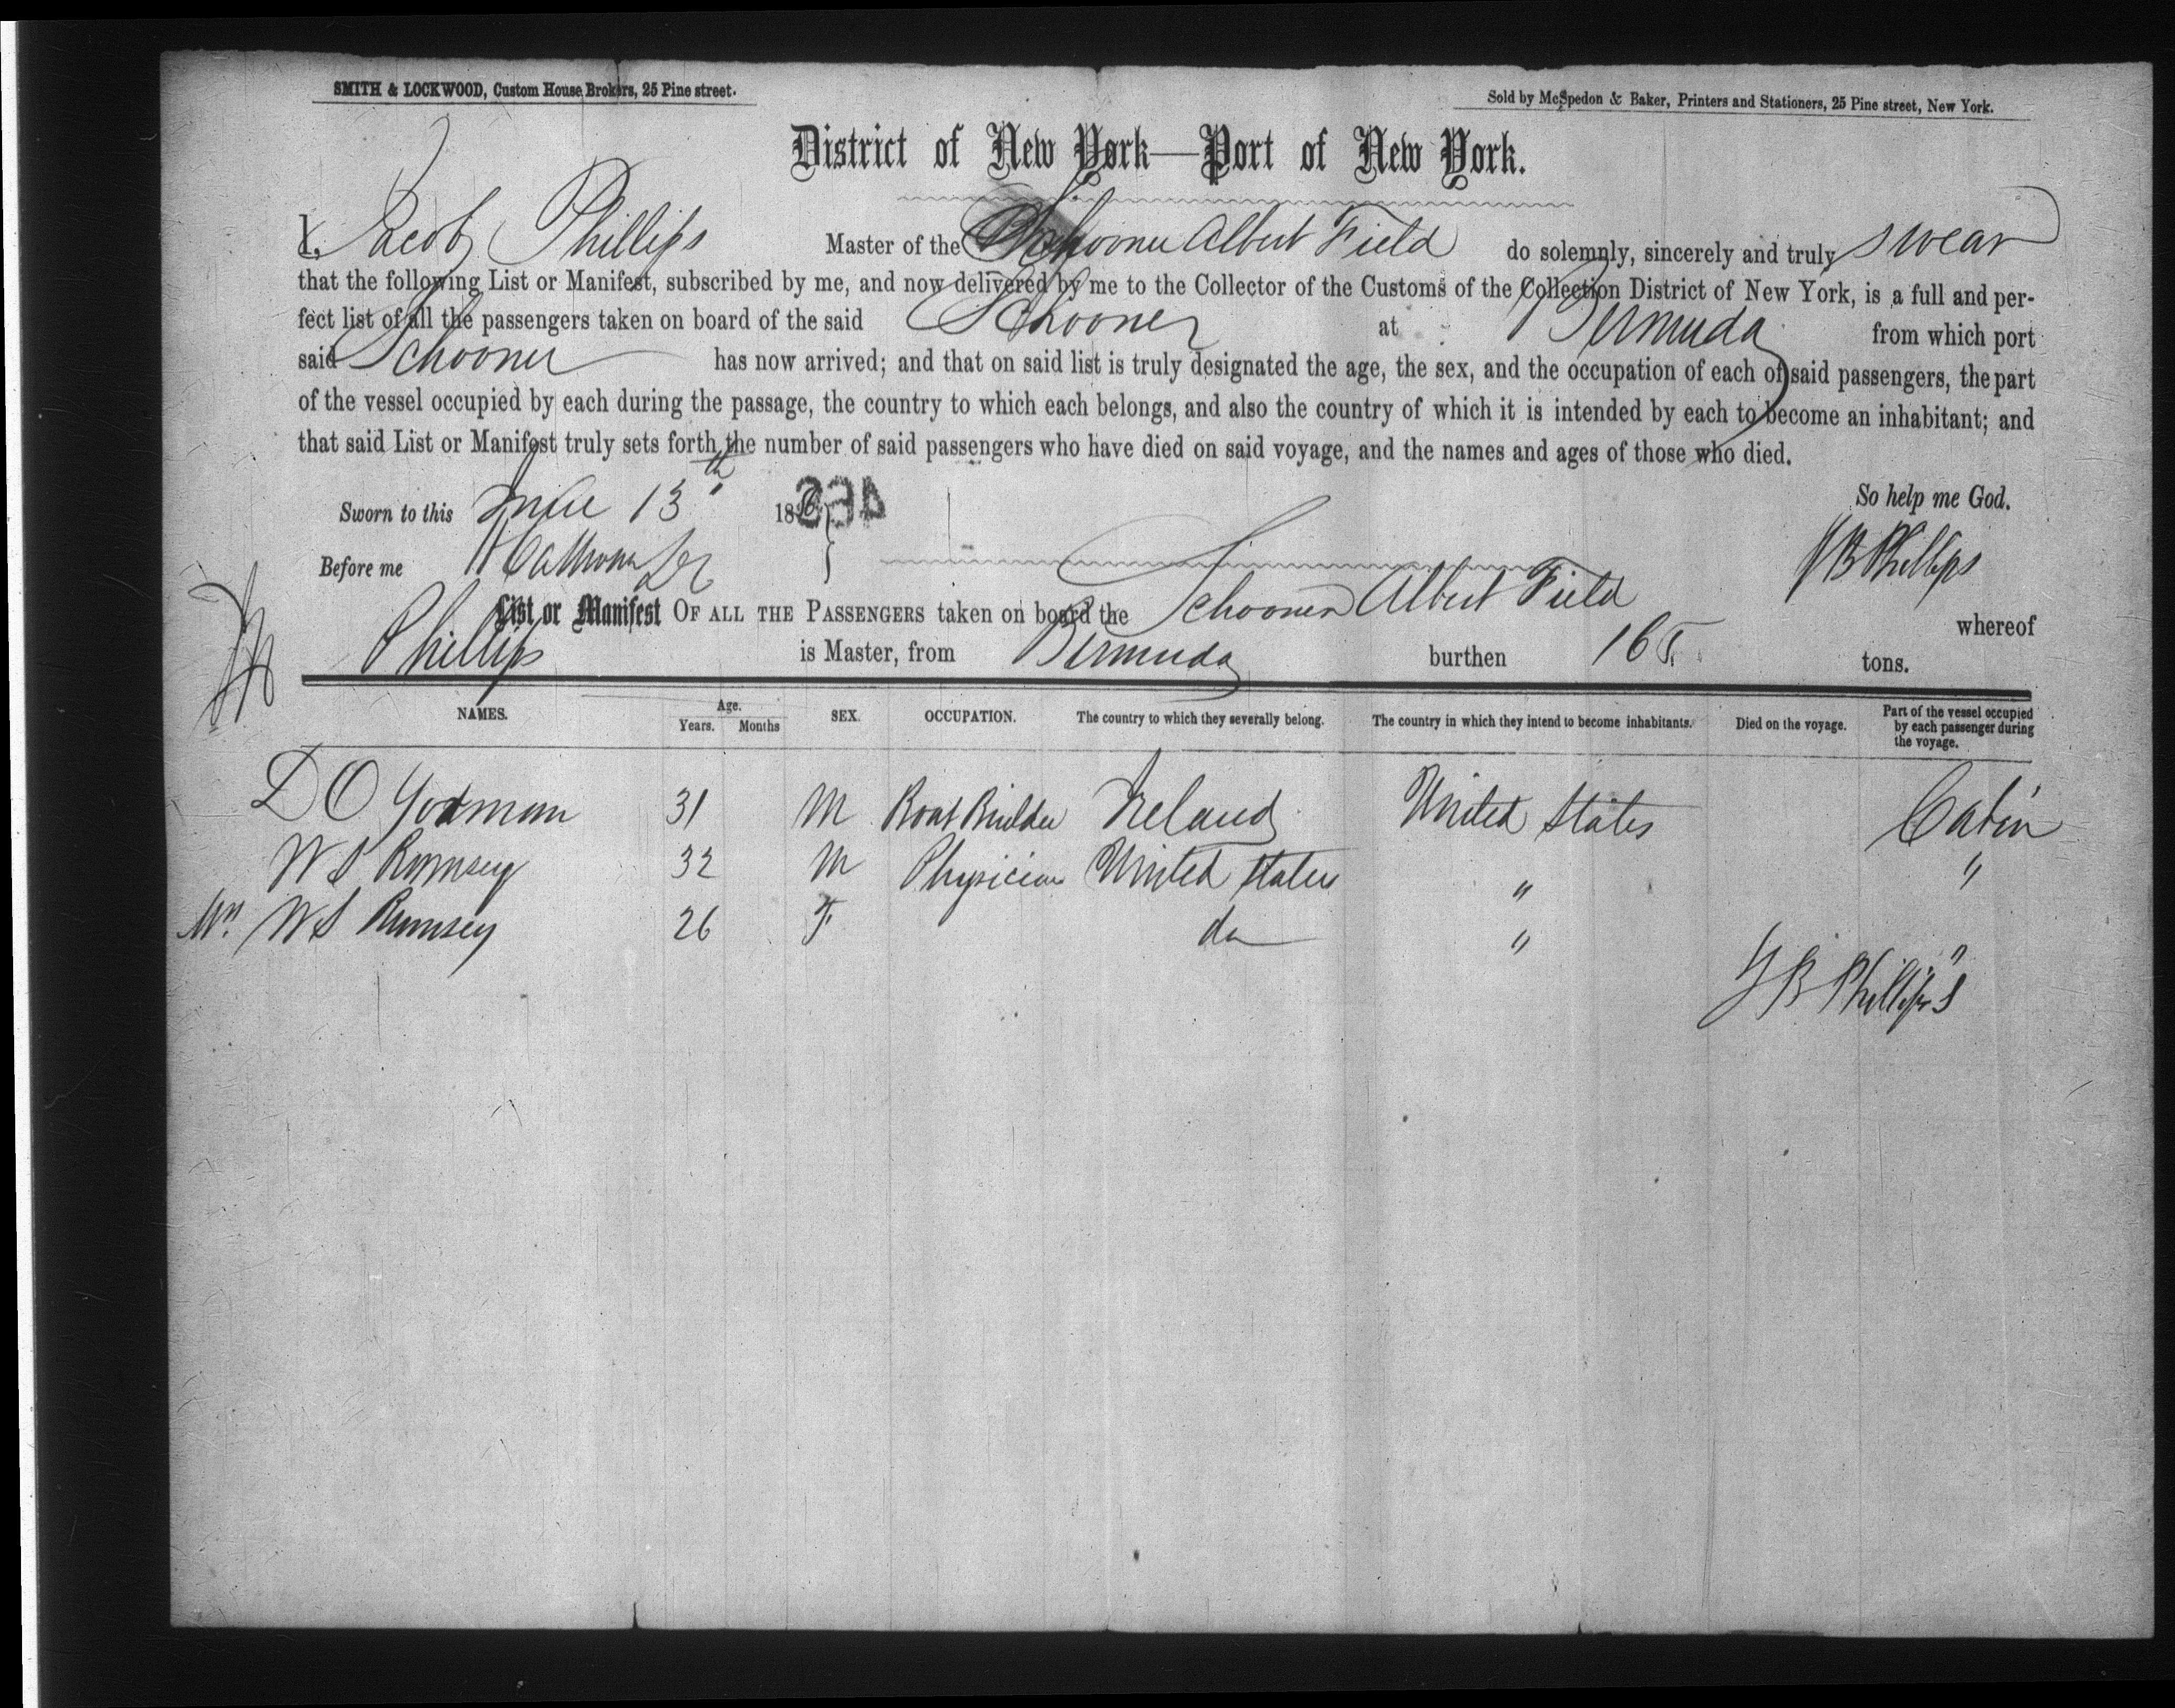 SMITH & LOCKWOOD, Custom House Brokers, 25 Pine street.
Sold by McSpedon & Baker, Printers and Stationers, 25 Pine street, New York.
District of New York—Port of New York.
I, Jacob Phillips Master of the Schooner Albert Field do solemnly, sincerely and truly swear
that the following List or Manifest, subscribed by me, and now delivered by me to the Collector of the Customs of the Collection District of New York, is a full and per-
fect list of all the passengers taken on board of the said Schooner at Bermuda from which port
said Schooner has now arrived; and that on said list is truly designated the age, the sex, and the occupation of each of said passengers, the part
of the vessel occupied by each during the passage, the country to which each belongs, and also the country of which it is intended by each to become an inhabitant; and
that said List or Manifest truly sets forth the number of said passengers who have died on said voyage, and the names and ages of those who died.
Sworn to this June 13th 18 So help me God.
Before me J B Phillips
List or Manifest OF ALL THE PASSENGERS taken on board the Schooner Albert Field whereof
Phillips is Master, from Bermuda burthen 165 tons.
NAMES. Age. Years. Months SEX. OCCUPATION. The country to which they severally belong. The country in which they intend to become inhabitants. Died on the voyage. Part of the vessel occupied by each passenger during the voyage.
D O 31 M Boat Builder Ireland United States Cabin
W S Rumsey 32 M Physician United States " "
Mrs W S Rumsey 26 F do " "
J B Phillips